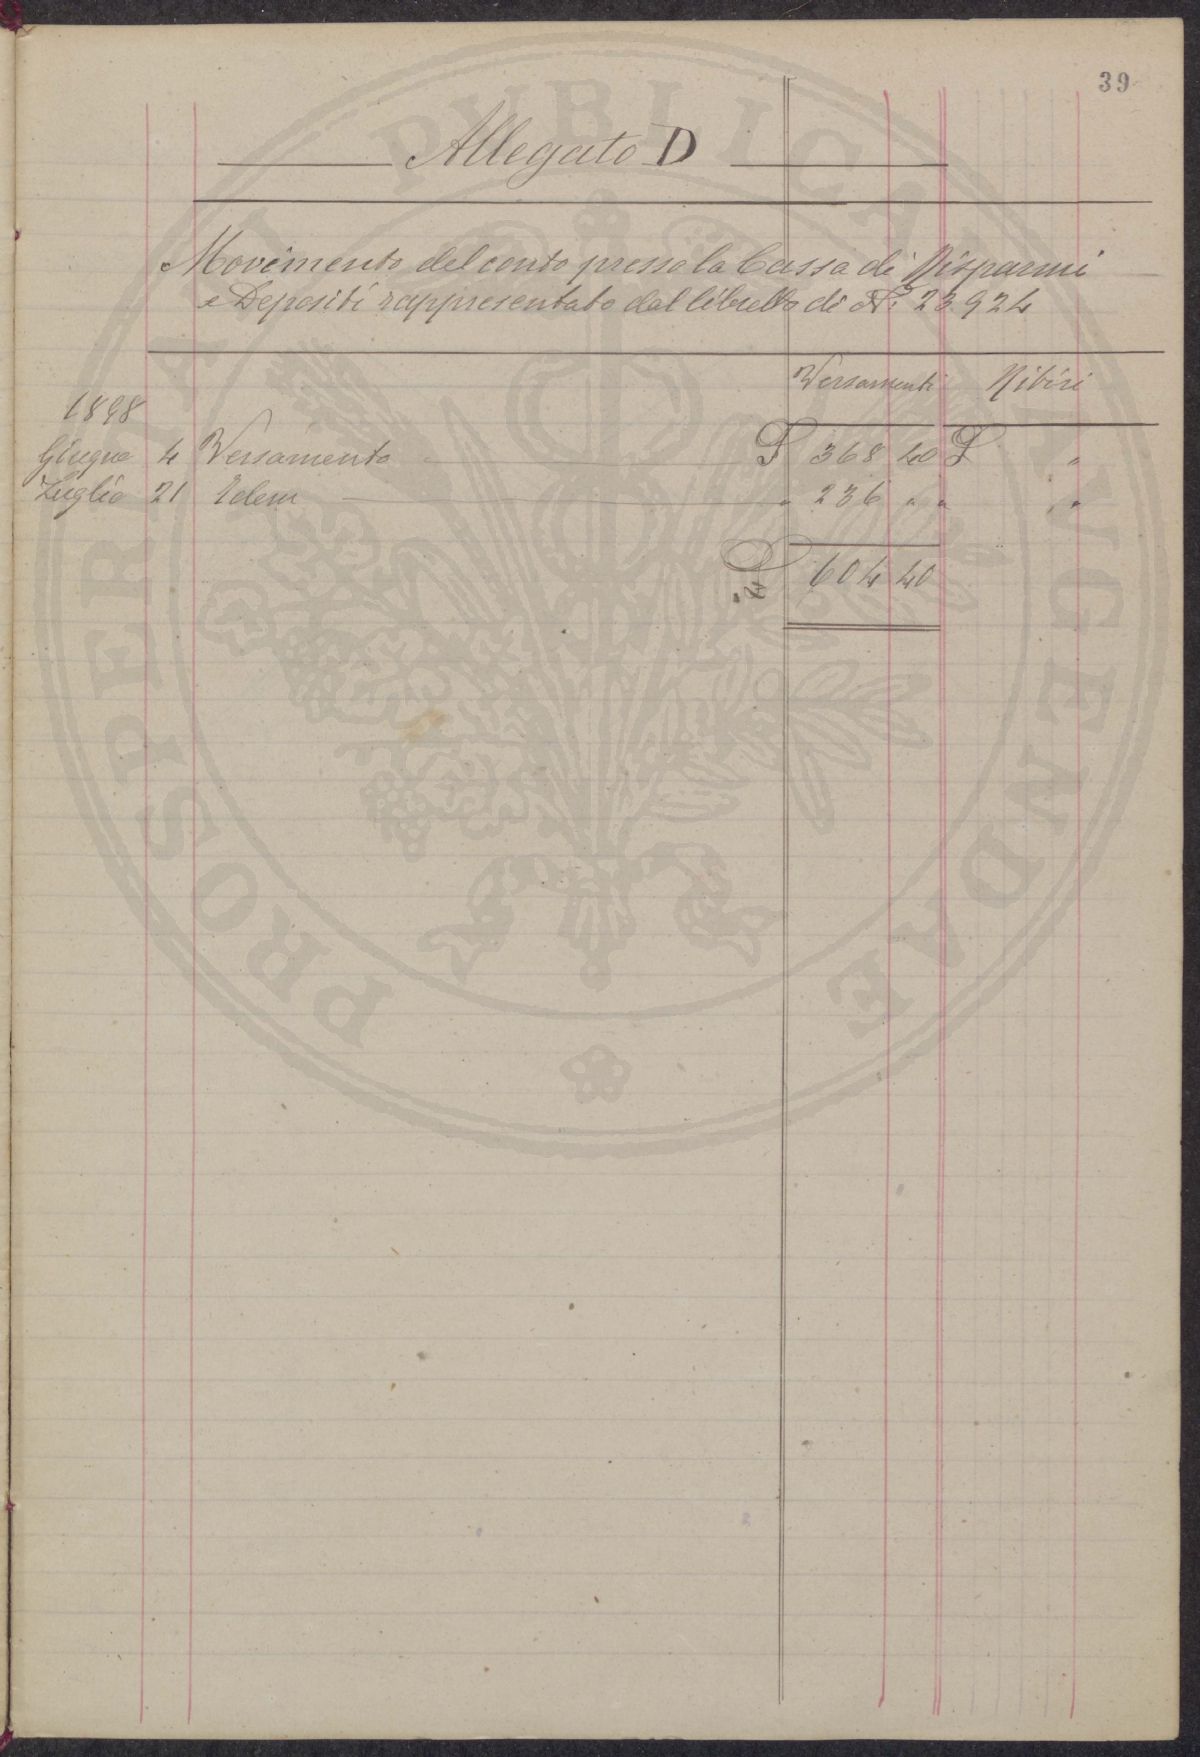 39
Allegato D
Movimento del conto presso la Cassa di Risparmi
e Depositi rappresentato dal libretto di N.º 23924
Versamenti Ritiri
1898
Giugno 4 Versamento £ 368 40 £ "
Luglio 21 Idem " 236 " " "
£ 604 40
PROSPERITATI PVBLICAE AVGENDAE